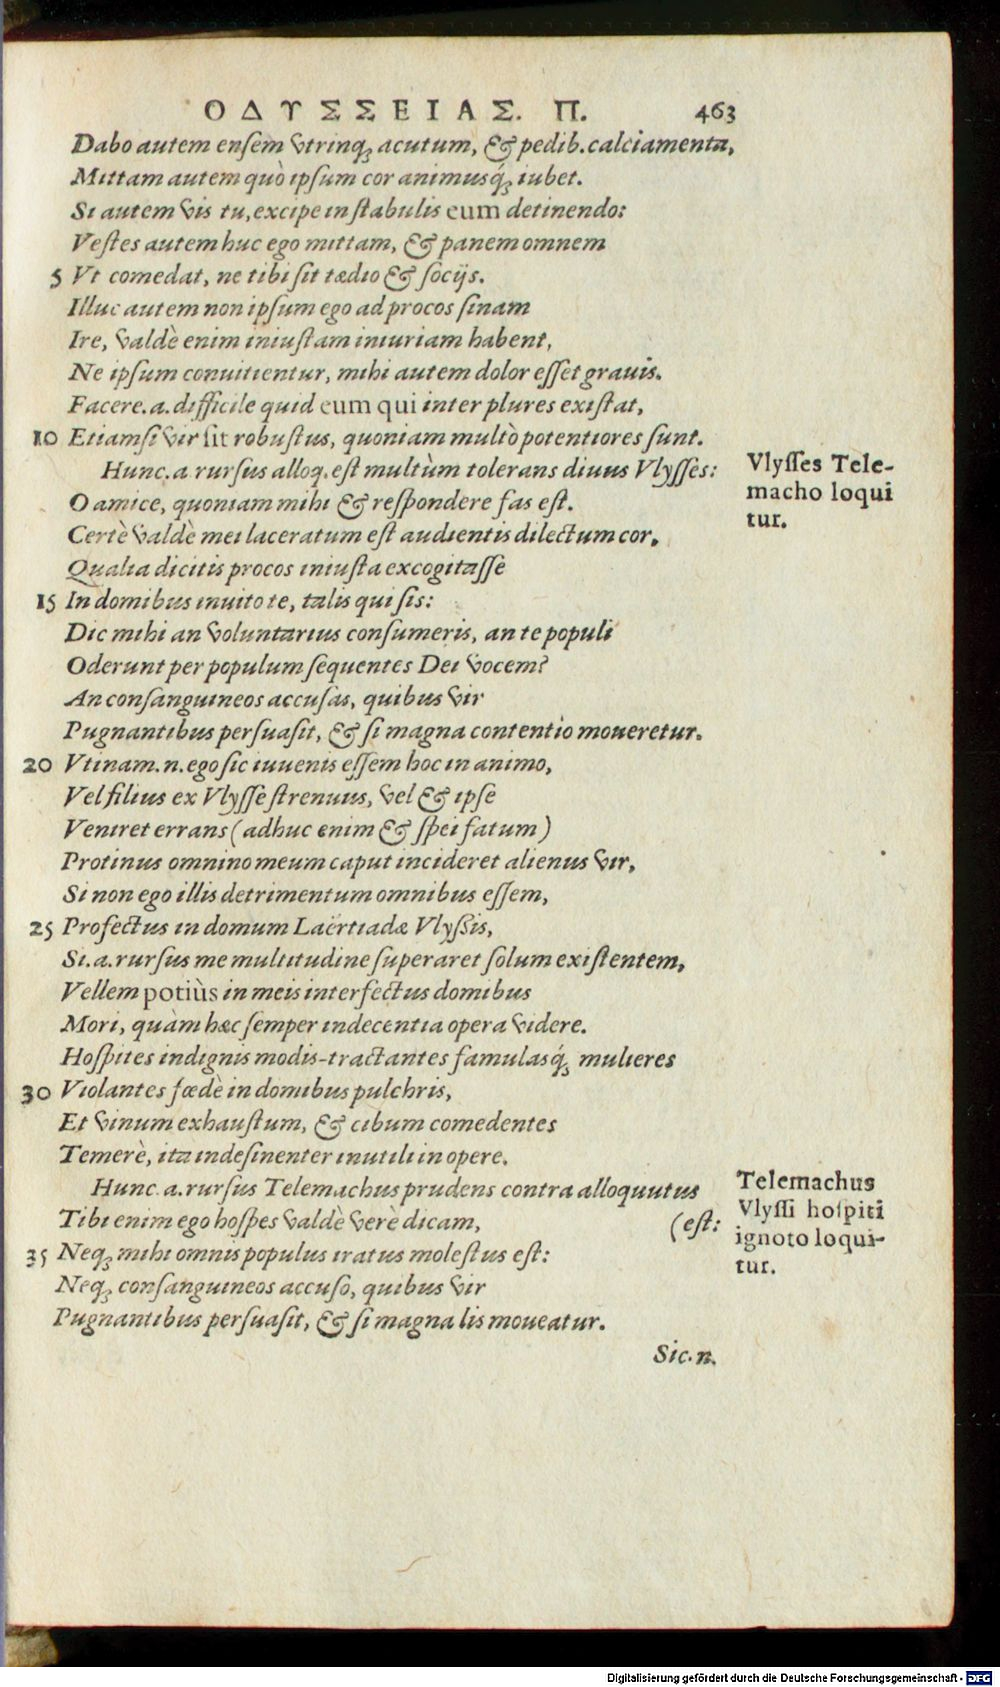 ΟΔΥΣΣΕΙΑΣ. Π. 463
Dabo autem enſem vtrinq; acutum, & pedib. calciamenta,
Mittam autem quò ipſum cor animusq́; iubet.
Si autem vis tu, excipe in ſtabulis eum detinendo:
Veſtes autem huc ego mittam, & panem omnem
5 Vt comedat, ne tibi ſit tædio & ſocijs.
Illuc autem non ipſum ego ad procos ſinam
Ire, valdè enim iniuſtam iniuriam habent,
Ne ipſum conuitientur, mihi autem dolor eſſet grauis.
Facere.a. difficile quid eum qui inter plures exiſtat,
10 Etiamſi vir ſit robuſtus, quoniam multò potentiores ſunt.
Hunc.a rurſus alloq. eſt multùm tolerans diuus Vlyſſes:
Vlyſſes Tele-
macho loqui
tur.
O amice, quoniam mihi & reſpondere fas eſt.
Certè valdè mei laceratum eſt audientis dilectum cor,
Qualia dicitis procos iniuſta excogitaſſe
15 In domibus inuito te, talis qui ſis:
Dic mihi an voluntarius conſumeris, an te populi
Oderunt per populum ſequentes Dei vocem?
An conſanguineos accuſas, quibus vir
Pugnantibus perſuaſit, & ſi magna contentio moueretur.
20 Vtinam.n. ego ſic iuuenis eſſem hoc in animo,
Vel filius ex Vlyſſe ſtrenuus, vel & ipſe
Veniret errans (adhuc enim & ſpei fatum)
Protinus omnino meum caput incideret alienus vir,
Si non ego illis detrimentum omnibus eſſem,
25 Profectus in domum Laërtiadæ Vlyßis,
Si.a. rurſus me multitudine ſuperaret ſolum exiſtentem,
Vellem potiùs in meis interfectus domibus
Mori, quàm hæc ſemper indecentia opera videre.
Hoſpites indignis modis-tractantes famulasq́; mulieres
30 Violantes fœdè in domibus pulchris,
Et vinum exhauſtum, & cibum comedentes
Temerè, ita indeſinenter inutili in opere.
Hunc.a. rurſus Telemachus prudens contra alloquutus
(eſt:
Telemachus
Vlyſſi hoſpiti
ignoto loqui-
tur.
Tibi enim ego hoſpes valdè verè dicam,
35 Neq; mihi omnis populus iratus moleſtus eſt:
Neq; conſanguineos accuſo, quibus vir
Pugnantibus perſuaſit, & ſi magna lis moueatur.
Sic.n.
Digitalisierung gefördert durch die Deutsche Forschungsgemeinschaft - DFG